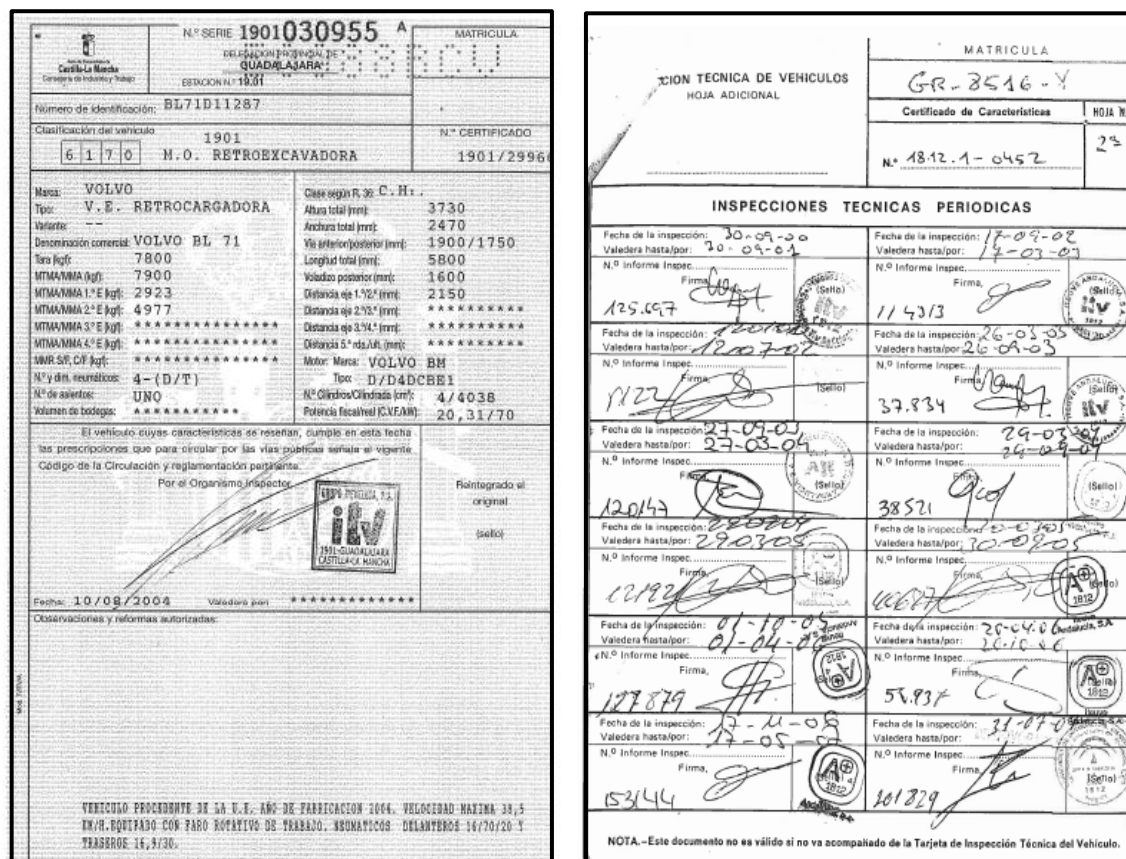 N.º SERIE 1901030955 A
MATRICULA
Castilla-La Mancha
Consejería de Industria y Trabajo
DELEGACION PROVINCIAL DE
GUADALAJARA
ESTACION N.º 19.01
Número de identificación: BL71D11287
Clasificación del vehículo
1901
6 1 7 0 M.O. RETROEXCAVADORA
N.º CERTIFICADO
1901/2996
Marca: VOLVO
Tipo: V.E. RETROCARGADORA
Variante: --
Denominación comercial: VOLVO BL 71
Tara (kgf): 7800
MTMA/MMA (kgf): 7900
MTMA/MMA 1.º E (kgf): 2923
MTMA/MMA 2.º E (kgf): 4977
MTMA/MMA 3.º E (kgf): **************
MTMA/MMA 4.º E (kgf): **************
MMR S/F, C/F (kgf): **************
N.º y dim. neumáticos: 4-(D/T)
N.º de asientos: UNO
Volumen de bodegas: ***********
Clase según R. 36: C.H:.
Altura total (mm): 3730
Anchura total (mm): 2470
Vía anterior/posterior (mm): 1900/1750
Longitud total (mm): 5800
Voladizo posterior (mm): 1600
Distancia eje 1.º/2.º (mm): 2150
Distancia eje 2.º/3.º (mm): *********
Distancia eje 3.º/4.º (mm): *********
Distancia 5.ª rda./últ. (mm): *********
Motor: Marca: VOLVO BM
Tipo: D/D4DCBE1
N.º Cilindros/Cilindrada (cm³): 4/4038
Potencia fiscal/real (C.V.F./kW): 20,31/70
El vehículo cuyas características se reseñan, cumple en esta fecha
las prescripciones que para circular por las vías públicas señala el vigente
Código de la Circulación y reglamentación pertinente.
Por el Organismo Inspector,
itv
1901-GUADALAJARA
CASTILLA-LA MANCHA
Reintegrado el
original
(sello)
Fecha: 10/08/2004 Valedero por: *************
Observaciones y reformas autorizadas:
VEHICULO PROCEDENTE DE LA U.E. AÑO DE FABRICACION 2004. VELOCIDAD MAXIMA 38,5
KM/H.EQUIPADO CON FARO ROTATIVO DE TRABAJO. NEUMATICOS DELANTEROS 16/70/20 Y
TRASEROS 16,9/30.
CION TECNICA DE VEHICULOS
HOJA ADICIONAL
MATRICULA
GR-3516-Y
Certificado de Características
HOJA N.
N.º 18.12.1-0452
2ª
INSPECCIONES TECNICAS PERIODICAS
Fecha de la inspección: 30-09-00
Valedera hasta/por: 30-09-01
N.º Informe Inspec.
Firma,
125.697
Fecha de la inspección: 17-09-02
Valedera hasta/por: 17-03-03
N.º Informe Inspec.
Firma,
(Sello)
Fecha de la inspección:
Valedera hasta/por: 12-07-02
N.º Informe Inspec.
Firma,
(Sello)
Fecha de la inspección: 26-03-03
Valedera hasta/por: 26-09-03
N.º Informe Inspec.
Firma,
(Sello)
37.834
Fecha de la inspección: 27-09-03
Valedera hasta/por: 27-03-04
N.º Informe Inspec.
Firma,
120147
Fecha de la inspección: 29-03-04
Valedera hasta/por: 29-09-04
N.º Informe Inspec.
(Sello)
38521
Fecha de la inspección:
Valedera hasta/por: 290305
N.º Informe Inspec.
Firma,
(Sello)
Fecha de la inspección:
Valedera hasta/por: 30-09-05
N.º Informe Inspec.
Firma,
(Sello)
1812
Fecha de la inspección: 01-10-05
Valedera hasta/por: 01-04-06
N.º Informe Inspec.
Firma,
127879
Fecha de la inspección: 20-04-06
Valedera hasta/por: 20-10-06
N.º Informe Inspec.
Firma,
(Sello)
1812
Fecha de la inspección: 17-11-06
Valedera hasta/por: 17-05-07
N.º Informe Inspec.
Firma,
1812
153144
Fecha de la inspección: 31-07-07
Valedera hasta/por:
N.º Informe Inspec.
Firma,
(Sello)
1812
201829
NOTA.–Este documento no es válido si no va acompañado de la Tarjeta de Inspección Técnica del Vehículo.